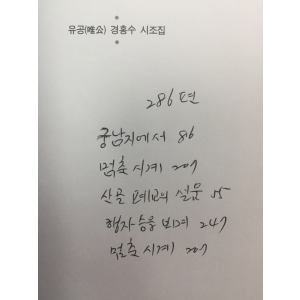 유공(唯公) 경홍수 시조집
286편
궁남지에서 86
멈춘 시계 207
산골 폐교의 설움 55
행자승을 보며 247
멈춘 시계 207